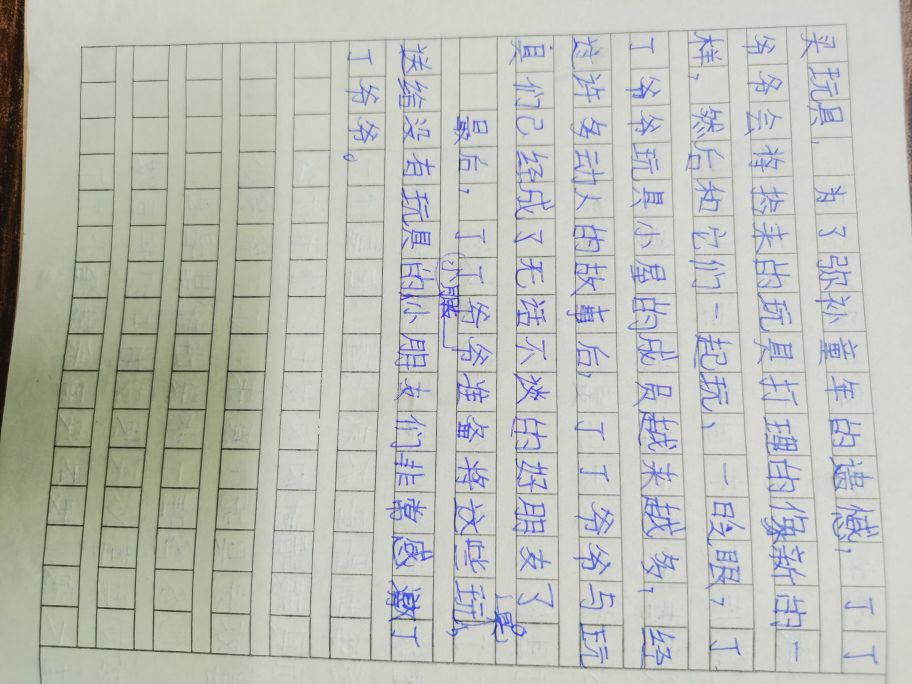 买玩具,为了弥补童年的遗憾,丁丁
爷爷会将捡来的玩具打理的像新的一
样,然后和它们一起玩、一眨眼,丁
丁爷爷玩具小屋的成员越来越多,经
过许多动人的故事后,丁丁爷爷与玩
具们已经成了无话不谈的好朋友了
最后,丁丁爷爷准备将这些玩具
送给没有玩具的小朋友们非常感激丁
丁爷爷。